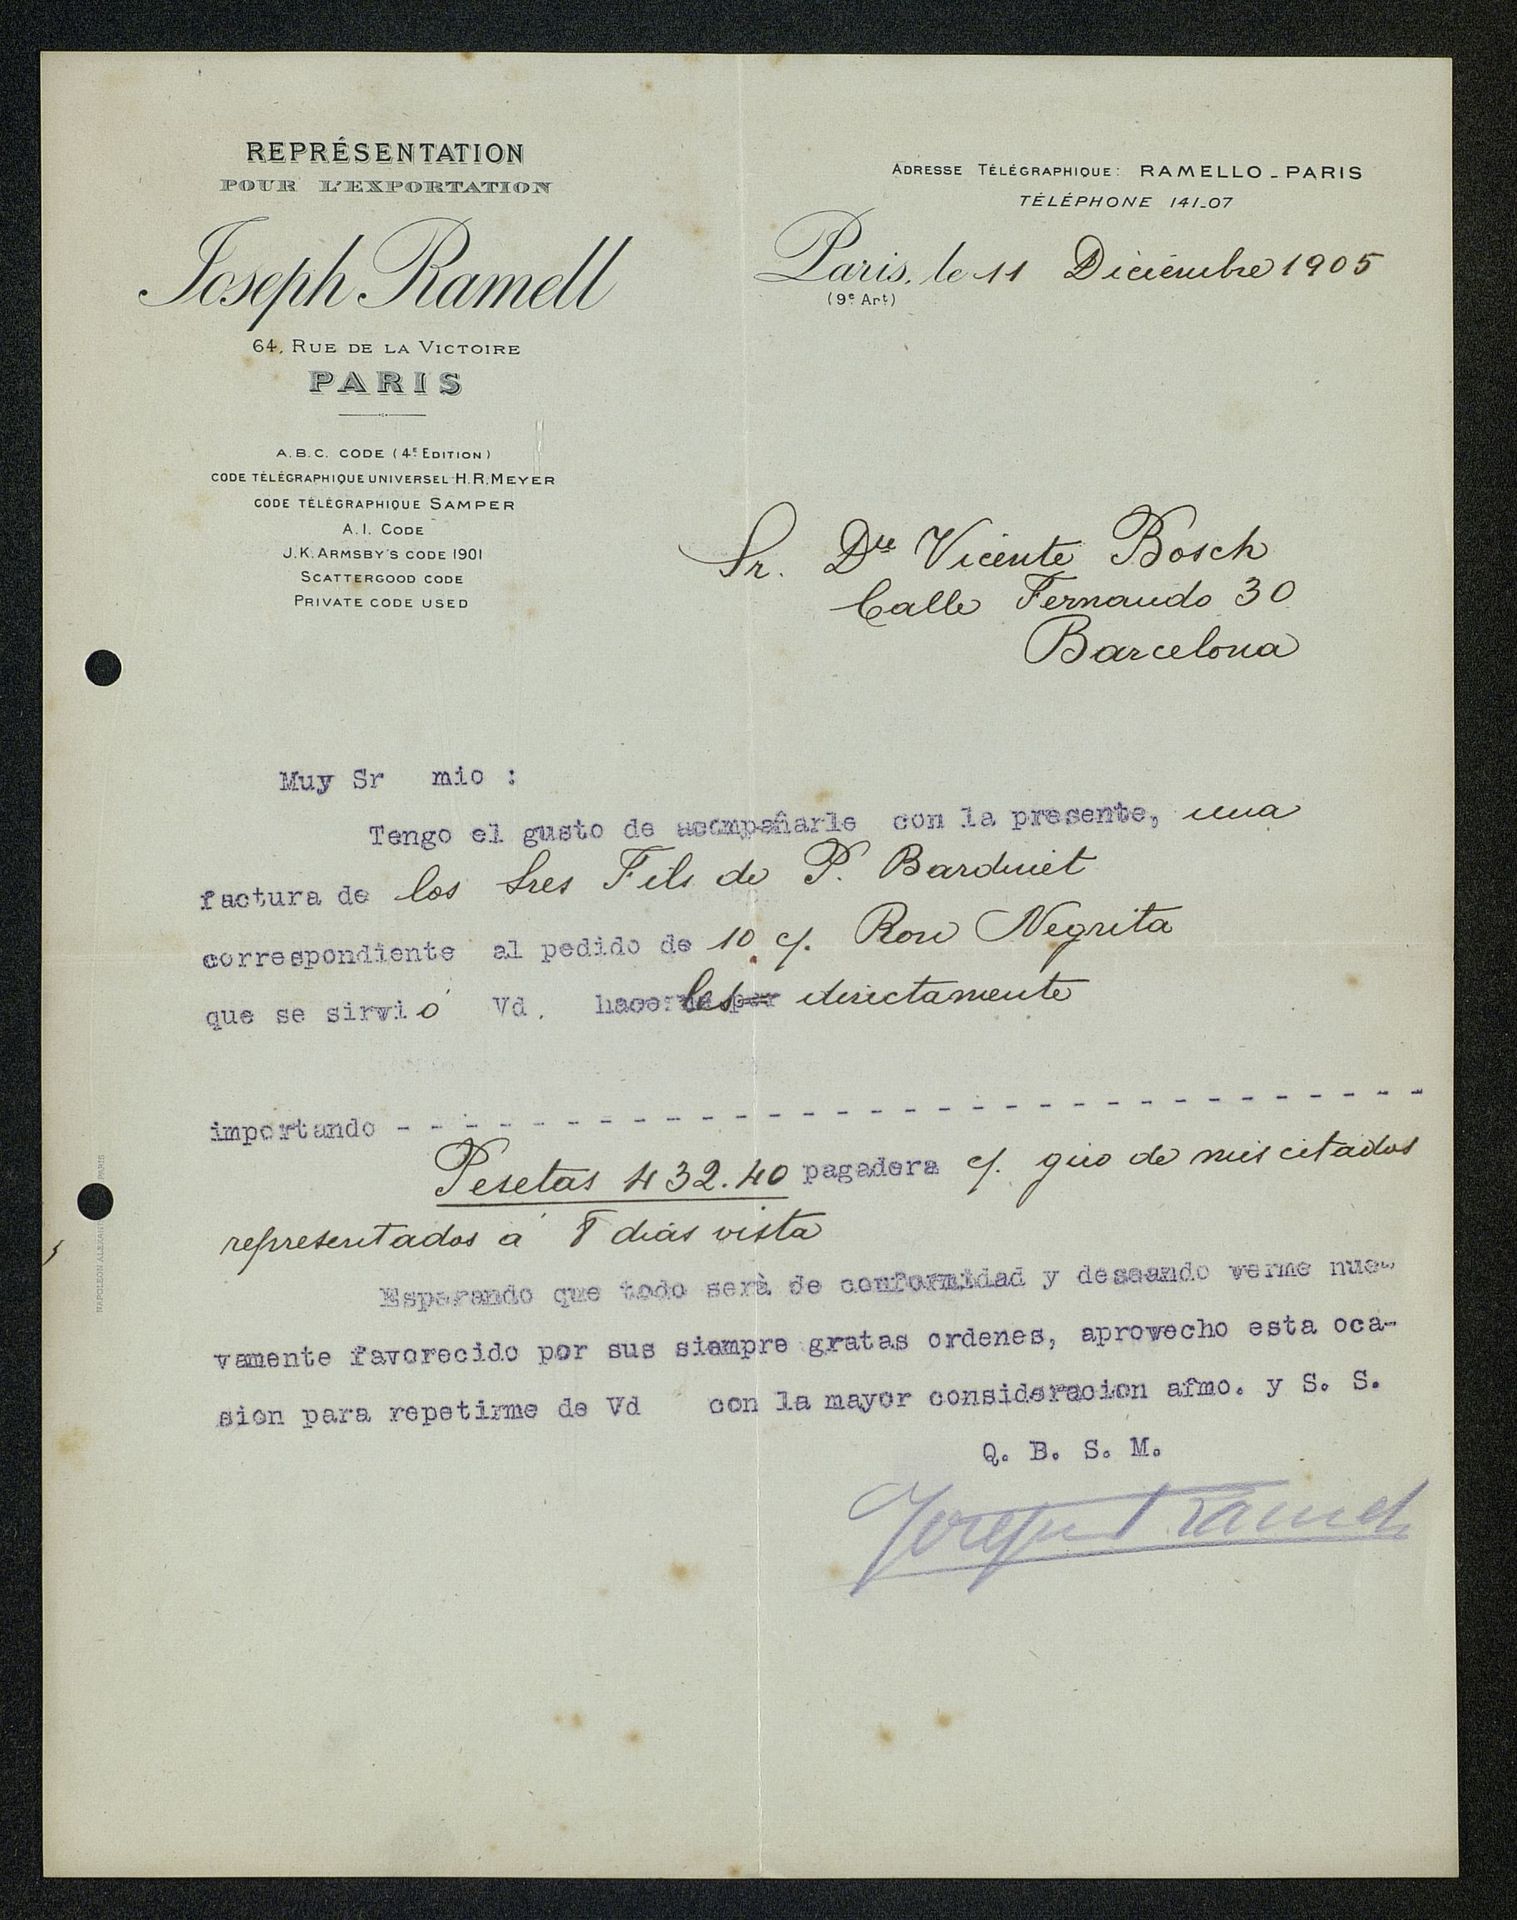 REPRÉSENTATION
POUR L'EXPORTATION
Joseph Ramell
64, RUE DE LA VICTOIRE
PARIS
A.B.C. CODE (4E EDITION)
CODE TÉLÉGRAPHIQUE UNIVERSEL H.R. MEYER
CODE TÉLÉGRAPHIQUE SAMPER
A.I. CODE
J.K. ARMSBY'S CODE 1901
SCATTERGOOD CODE
PRIVATE CODE USED
ADRESSE TÉLÉGRAPHIQUE: RAMELLO_PARIS
TÉLÉPHONE 141_07
Paris, le 11 Diciembre 1905
(9e Art)
Sr. Dn Vicente Bosch
Calle Fernando 30
Barcelona
Muy Sr mio :
Tengo el gusto de acompañarle con la presente, una
factura de los Sres Fils de P. Bardinet
correspondiente al pedido de 10 c/. Ron Negrita
que se sirvió Vd. hacerles directamente
importando - - - - - - - - - - - - - - - - - - - - - - - - - - - - - - -
Pesetas 432.40 pagadera c/. giro de mis citados
representados á 8 dias vista
Esperando que todo serà de conformidad y deseando verme nue-
vamente favorecido por sus siempre gratas ordenes, aprovecho esta oca-
sion para repetirme de Vd con la mayor consideracion afmo. y S. S.
Q. B. S. M.
Joseph Ramell